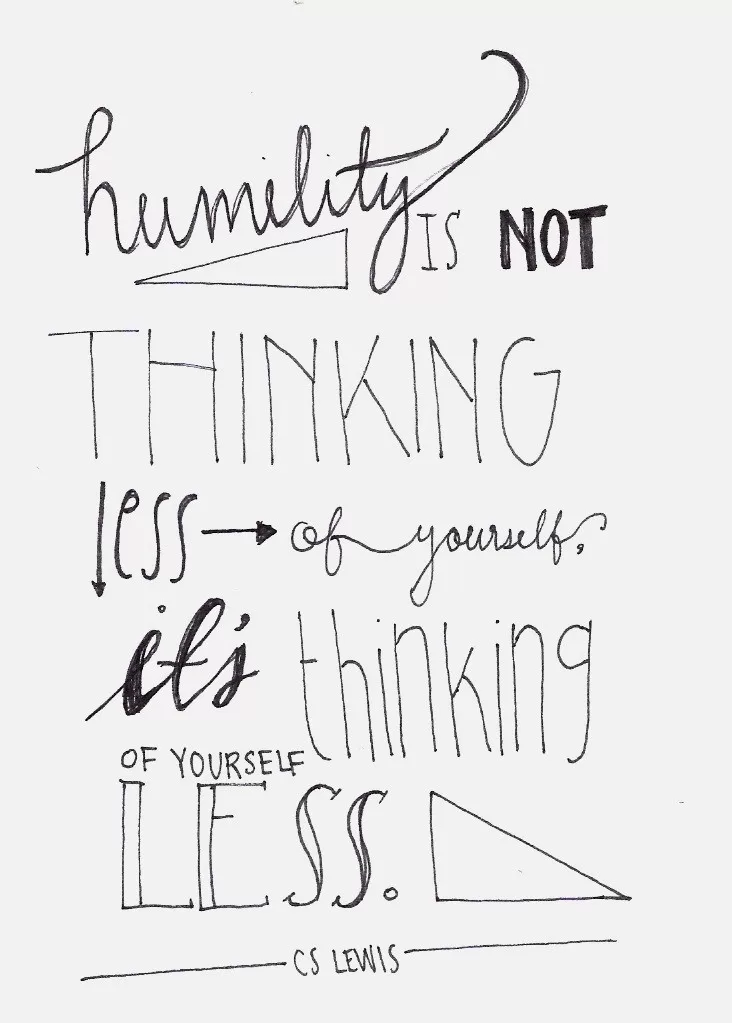 humility IS NOT
THINKING
less of yourself,
it's thinking
OF YOURSELF
LESS.
CS LEWIS